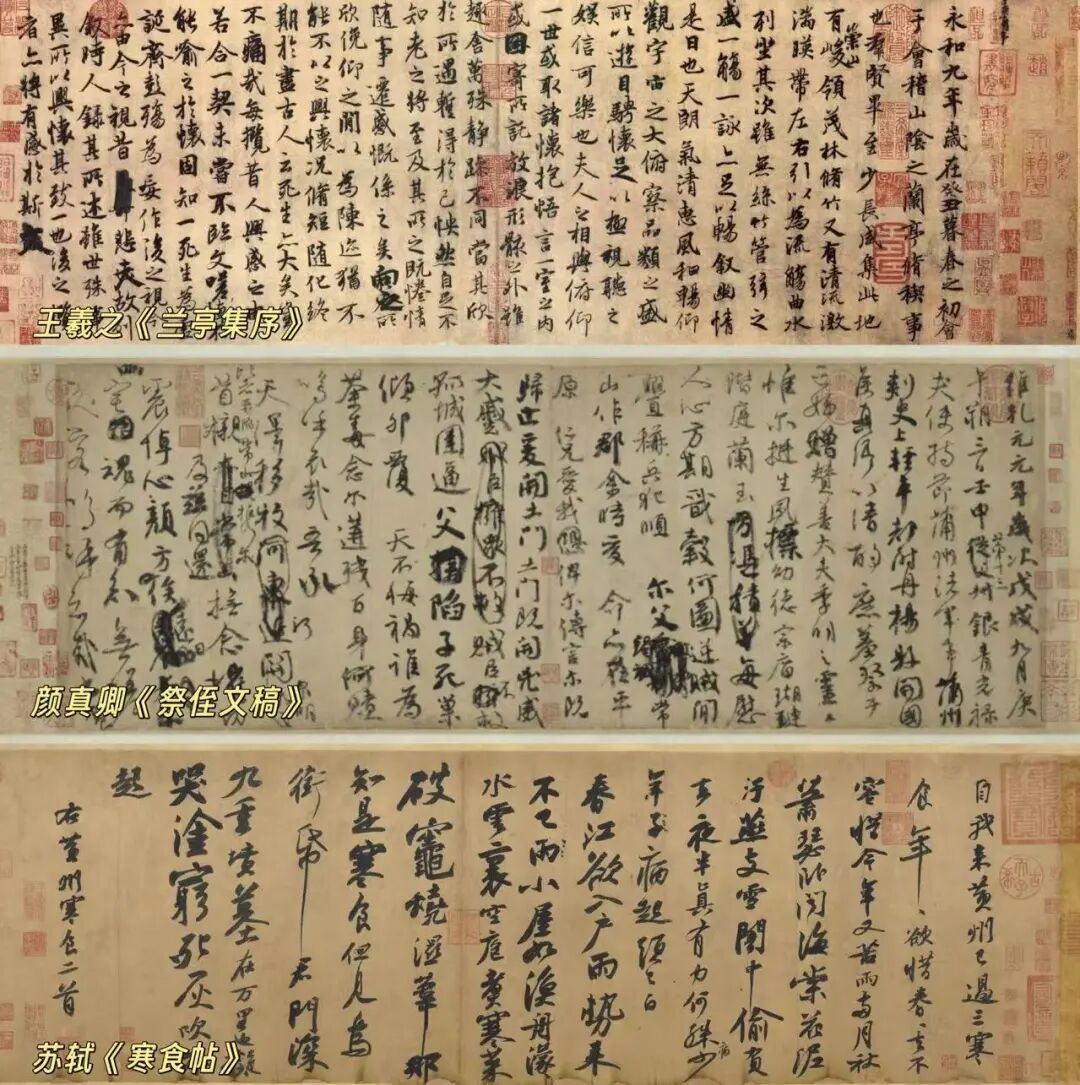 永和九年歲在癸丑暮春之初會
于會稽山陰之蘭亭脩稧事
也羣賢畢至少長咸集此地
有崇山峻領茂林脩竹又有清流激
湍暎帶左右引以為流觴曲水
列坐其次雖無絲竹管弦之
盛一觴一詠亦足以暢敘幽情
是日也天朗氣清惠風和暢仰
觀宇宙之大俯察品類之盛
所以遊目騁懷足以極視聽之
娛信可樂也夫人之相與俯仰
一世或取諸懷抱悟言一室之內
或因寄所託放浪形骸之外雖
趣舍萬殊靜躁不同當其欣
於所遇暫得於己怏然自足不
知老之將至及其所之既惓情
隨事遷感慨係之矣向之所
欣俛仰之閒以為陳迹猶不
能不以之興懷況脩短隨化終
期於盡古人云死生亦大矣
不痛哉每攬昔人興感之
若合一契未嘗不臨文嗟
能喻之於懷固知一死生為
誕齊彭殤為妄作後之視
亦今之視昔悲夫故
敘時人錄其所述雖世殊
異所以興懷其致一也後之
者亦將有感於斯文
王羲之《兰亭集序》
維乾元元年歲次戊戌九月庚
午朔三日壬申從父銀青光祿
夫使持節蒲州諸軍事蒲州
刺史上輕車都尉丹楊縣開國
侯真卿以清酌庶羞祭于
亡姪贈贊善大夫季明之靈
惟爾挺生夙標幼德宗廟瑚璉
階庭蘭玉每慰
人心方期戩穀何圖逆賊閒
釁稱兵犯順爾父常
山作郡余時受命亦在平
原仁兄愛我俾爾傳言爾既
歸止爰開土門土門既開凶威
大蹙賊臣不救
孤城圍逼父陷子死巢
傾卵覆天不悔禍誰為
荼毒念爾遘殘百身何贖
嗚呼哀哉吾承
天澤移牧河關
首櫬及茲同還撫念
震悼心顏方俟
魂而有知無
嗚呼哀哉
颜真卿《祭侄文稿》
自我來黃州已過三寒
食年年欲惜春春去不
容惜今年又苦雨兩月秋
蕭瑟臥聞海棠花泥
汙燕支雪闇中偷負
去夜半真有力何殊少
年子病起頭已白
春江欲入戶雨勢來
不已雨小屋如漁舟濛濛
水雲裏空庖煮寒菜
破竈燒濕葦那
知是寒食但見烏
銜帋君門深
九重墳墓在万里也擬
哭塗窮死灰吹不
起
右黃州寒食二首
苏轼《寒食帖》